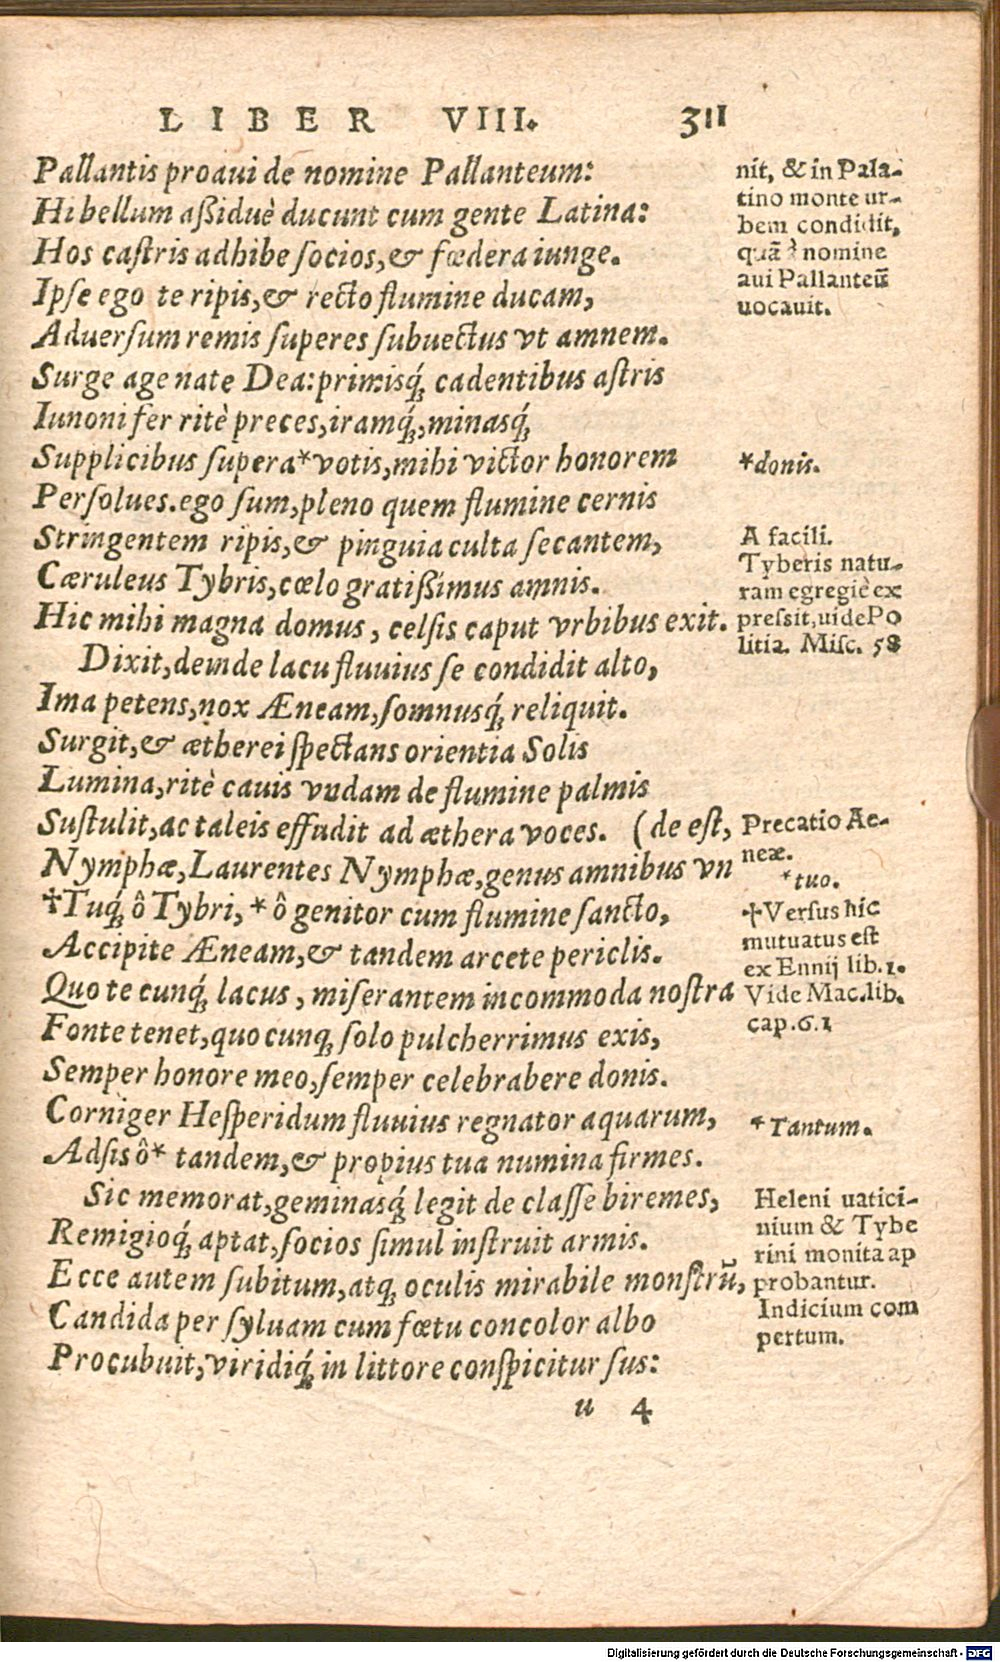 LIBER VIII. 311
Pallantis proaui de nomine Pallanteum:
Hi bellum aßiduè ducunt cum gente Latina:
Hos caſtris adhibe ſocios, & fœdera iunge.
Ipſe ego te ripis, & recto flumine ducam,
Aduerſum remis ſuperes ſubuectus vt amnem.
Surge age nate Dea: primisq́; cadentibus aſtris
Iunoni fer ritè preces, iramq́;, minasq́;
Supplicibus ſupera* votis, mihi victor honorem
Perſolues. ego ſum, pleno quem flumine cernis
Stringentem ripis, & pinguia culta ſecantem,
Cæruleus Tybris, cœlo gratißimus amnis.
Hic mihi magna domus, celſis caput vrbibus exit.
Dixit, deinde lacu fluuius ſe condidit alto,
Ima petens, nox Æneam, ſomnusq́; reliquit.
Surgit, & ætherei ſpectans orientia Solis
Lumina, ritè cauis vndam de flumine palmis
Suſtulit, ac taleis effudit ad æthera voces. (de eſt,
Nymphæ, Laurentes Nymphæ, genus amnibus vn
†Tuq; ô Tybri, * ô genitor cum flumine ſancto,
Accipite Æneam, & tandem arcete periclis.
Quo te cunq́; lacus, miſerantem incommoda noſtra
Fonte tenet, quo cunq; ſolo pulcherrimus exis,
Semper honore meo, ſemper celebrabere donis.
Corniger Heſperidum fluuius regnator aquarum,
Adſis ô* tandem, & propius tua numina firmes.
Sic memorat, geminasq́; legit de claſſe biremes,
Remigioq́; aptat, ſocios ſimul inſtruit armis.
Ecce autem ſubitum, atq; oculis mirabile monſtrũ,
Candida per ſyluam cum fœtu concolor albo
Procubuit, viridiq́; in littore conſpicitur ſus:
u 4
nit, & in Pala-
tino monte ur-
bem condidit,
quã nomine
aui Pallanteũ
uocauit.
*donis.
A facili.
Tyberis natu-
ram egregiè ex
preſsit, uide Po
litia. Miſc. 58
Precatio Ae-
neæ.
*tuo.
†Verſus hic
mutuatus eſt
ex Ennij lib. 1.
Vide Mac. lib.
cap. 6. 1
*Tantum.
Heleni uatici-
nium & Tybe
rini monita ap
probantur.
Indicium com
pertum.
Digitalisierung gefördert durch die Deutsche Forschungsgemeinschaft - DFG